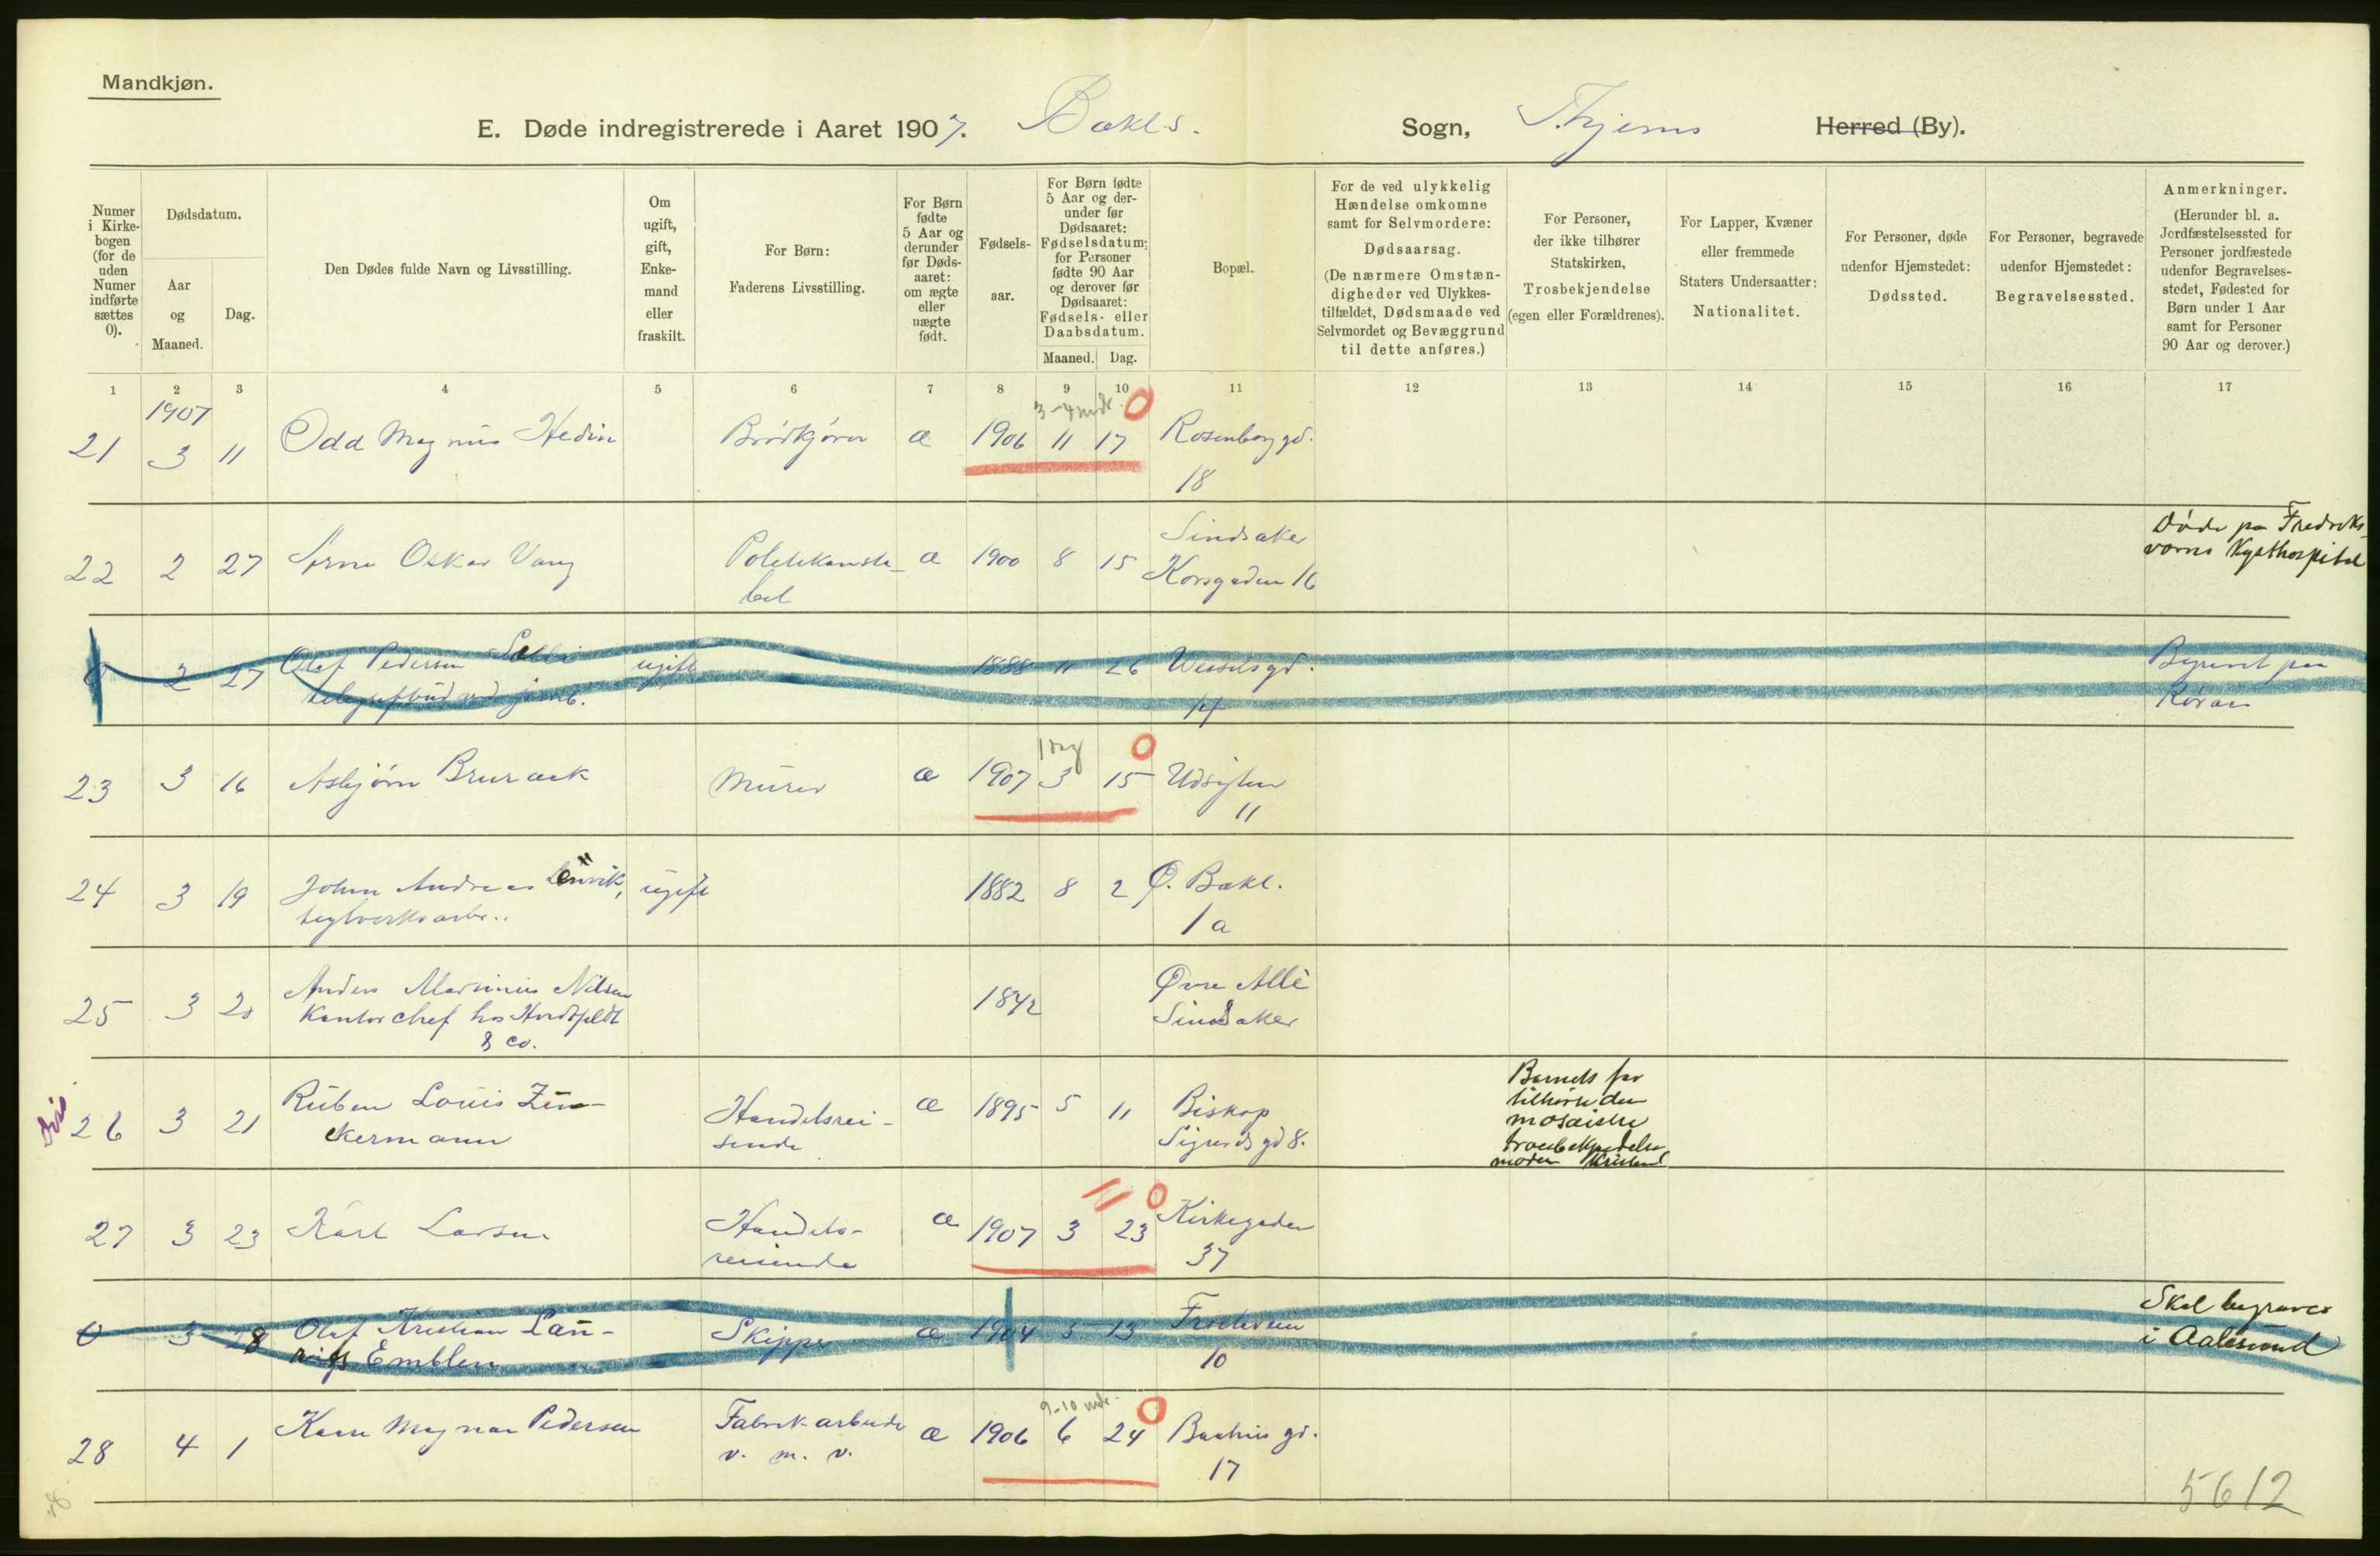 Mandkjøn.
E. Døde indregistrerede i Aaret 1907. Bakl.s. Sogn, Thjems Herred (By).
Numer i Kirkebogen (for de uden Numer indførte sættes 0).
Dødsdatum.
Aar og Maaned.
Dag.
Den Dødes fulde Navn og Livsstilling.
Om ugift, gift, Enkemand eller fraskilt.
For Børn: Faderens Livsstilling.
For Børn fødte 5 Aar og derunder før Dødsaaret: om ægte eller uægte født.
Fødselsaar.
For Børn fødte 5 Aar og derunder før Dødsaaret: Fødselsdatum; for Personer fødte 90 Aar og derover før Dødsaaret: Fødsels- eller Daabsdatum.
Maaned. Dag.
Bopæl.
For de ved ulykkelig Hændelse omkomne samt for Selvmordere: Dødsaarsag. (De nærmere Omstændigheder ved Ulykkestilfældet, Dødsmaade ved Selvmordet og Bevæggrund til dette anføres.)
For Personer, der ikke tilhører Statskirken, Trosbekjendelse (egen eller Forældrenes).
For Lapper, Kvæner eller fremmede Staters Undersaatter: Nationalitet.
For Personer, døde udenfor Hjemstedet: Dødssted.
For Personer, begravede udenfor Hjemstedet: Begravelsessted.
Anmerkninger. (Herunder bl. a. Jordfæstelsessted for Personer jordfæstede udenfor Begravelsesstedet, Fødested for Børn under 1 Aar samt for Personer 90 Aar og derover.)
1 2 3 4 5 6 7 8 9 10 11 12 13 14 15 16 17
1907 3-4 mdr 0
21 3 11 Odd Magnus Hedin Brødkjører æ 1906 11 17 Rosenborg gd.
18
22 2 27 Arne Oskar Vang Politikonsta- æ 1900 8 15 Sindsaker Døde paa Fredriks
bel Korsgaden 16 værns Kysthospital
0 2 27 Olaf Pedersen ugift 1888 11 26 Wesselsgd. Begravet paa
telegrafbud ved jernb. Røraas
1 dag 0
23 3 16 Asbjørn Brurack Murer æ 1907 3 15 Udsigten
11
24 3 19 Johan Andreas Lenvik, ugift 1882 8 2 Ø. Bakl.
teglverksarb. 1 a
25 3 20 Anders Marinius Nilsen 1842 Øvre Allé
Kontorchef hos Hvidtfeldt Sindsaker
& Co.
26 3 21 Ruben Louis Zuc- Handelsrei- æ 1895 5 11 Biskop Barnets far
kermann sende Sigurds gd 8. tilhørte den
mosaiske
trosbekjendelse
moder kristen
0
27 3 23 Karl Larsen Handels- æ 1907 3 23 Kirkegaden
reisende 37
0 3 28 Olaf Kristian Lau- Skipper æ 1904 5 13 Frodeveien Skal begraves
rits Emblem 10 i Aalesund
9-10 mdr. 0
28 4 1 Magnar Pedersen Fabrikarbeider æ 1906 6 24 Baahus gd.
v. m. v. 17
5612